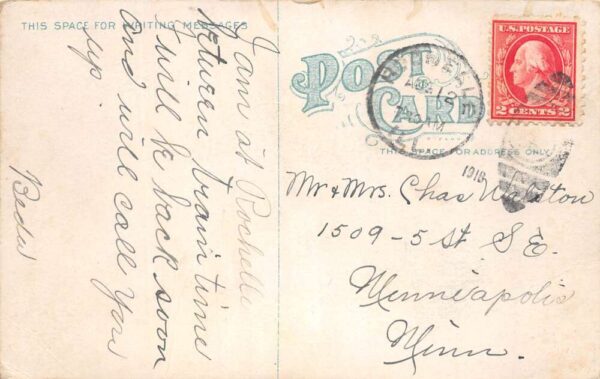 THIS SPACE FOR WRITING MESSAGES
I am at Rochelle
between train time
will be back soon
and will call you
up.
POST
CARD
THIS SPACE FOR ADDRESS ONLY
U.S. POSTAGE
2 CENTS 2
12
AM
ILL.
1918
Mr & Mrs. Chas
1509-5 St S.E.
Minneapolis
Minn.